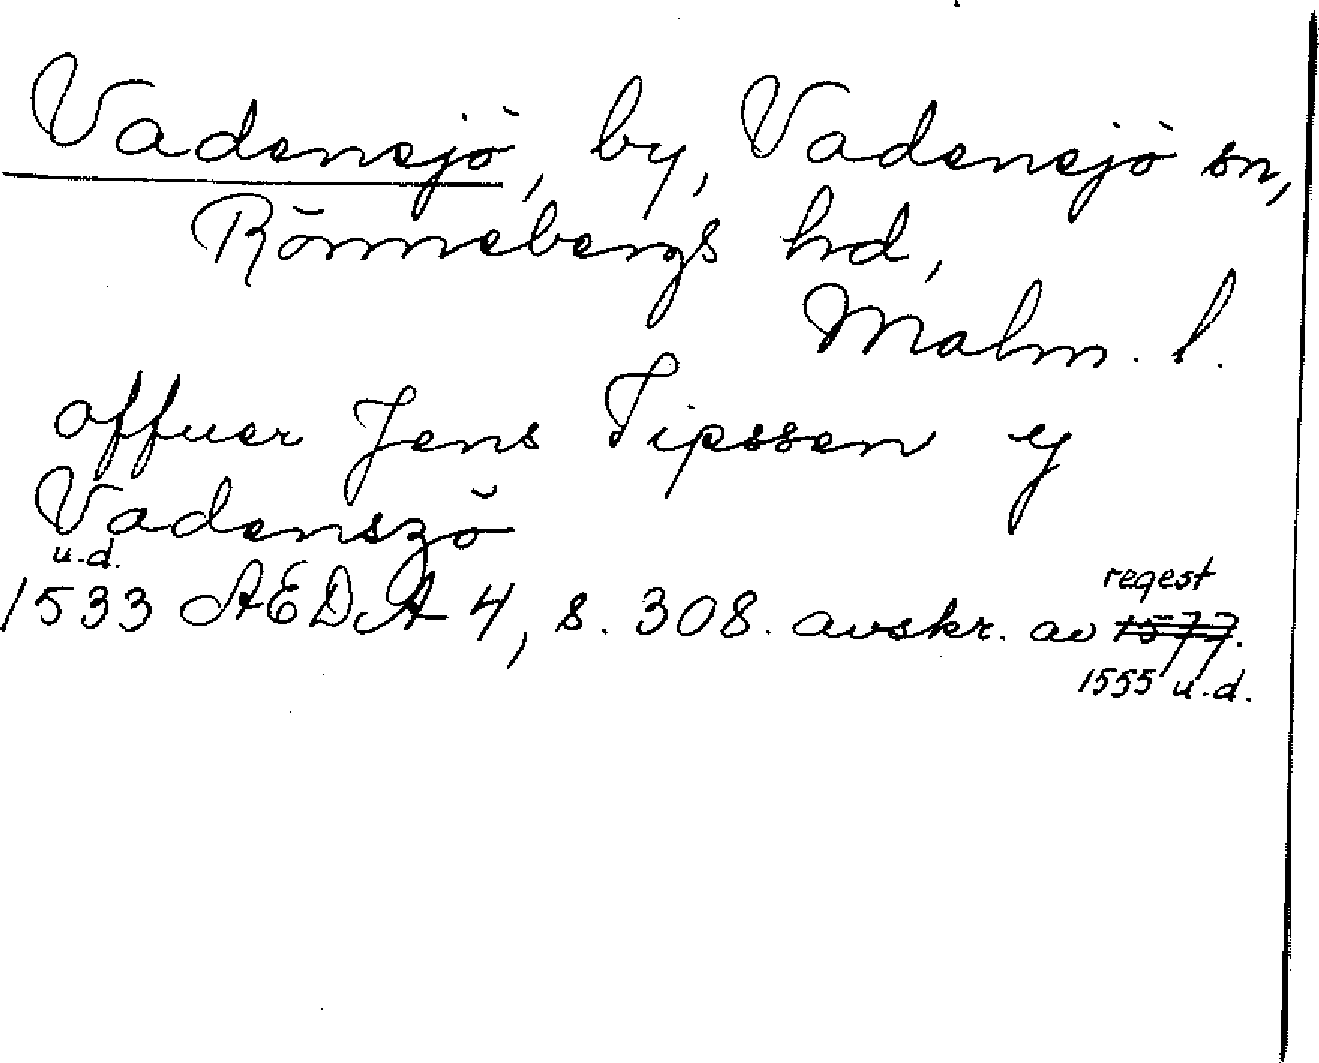 Vadensjö, by, Vadensjö sn,
Rönnebergs hd,
Malm. l.
offuer Jens Tipssen y
Vadenszö
u.d.
1533 AEDA 4, s. 308. avskr. av 1577.
regest
1555 u.d.